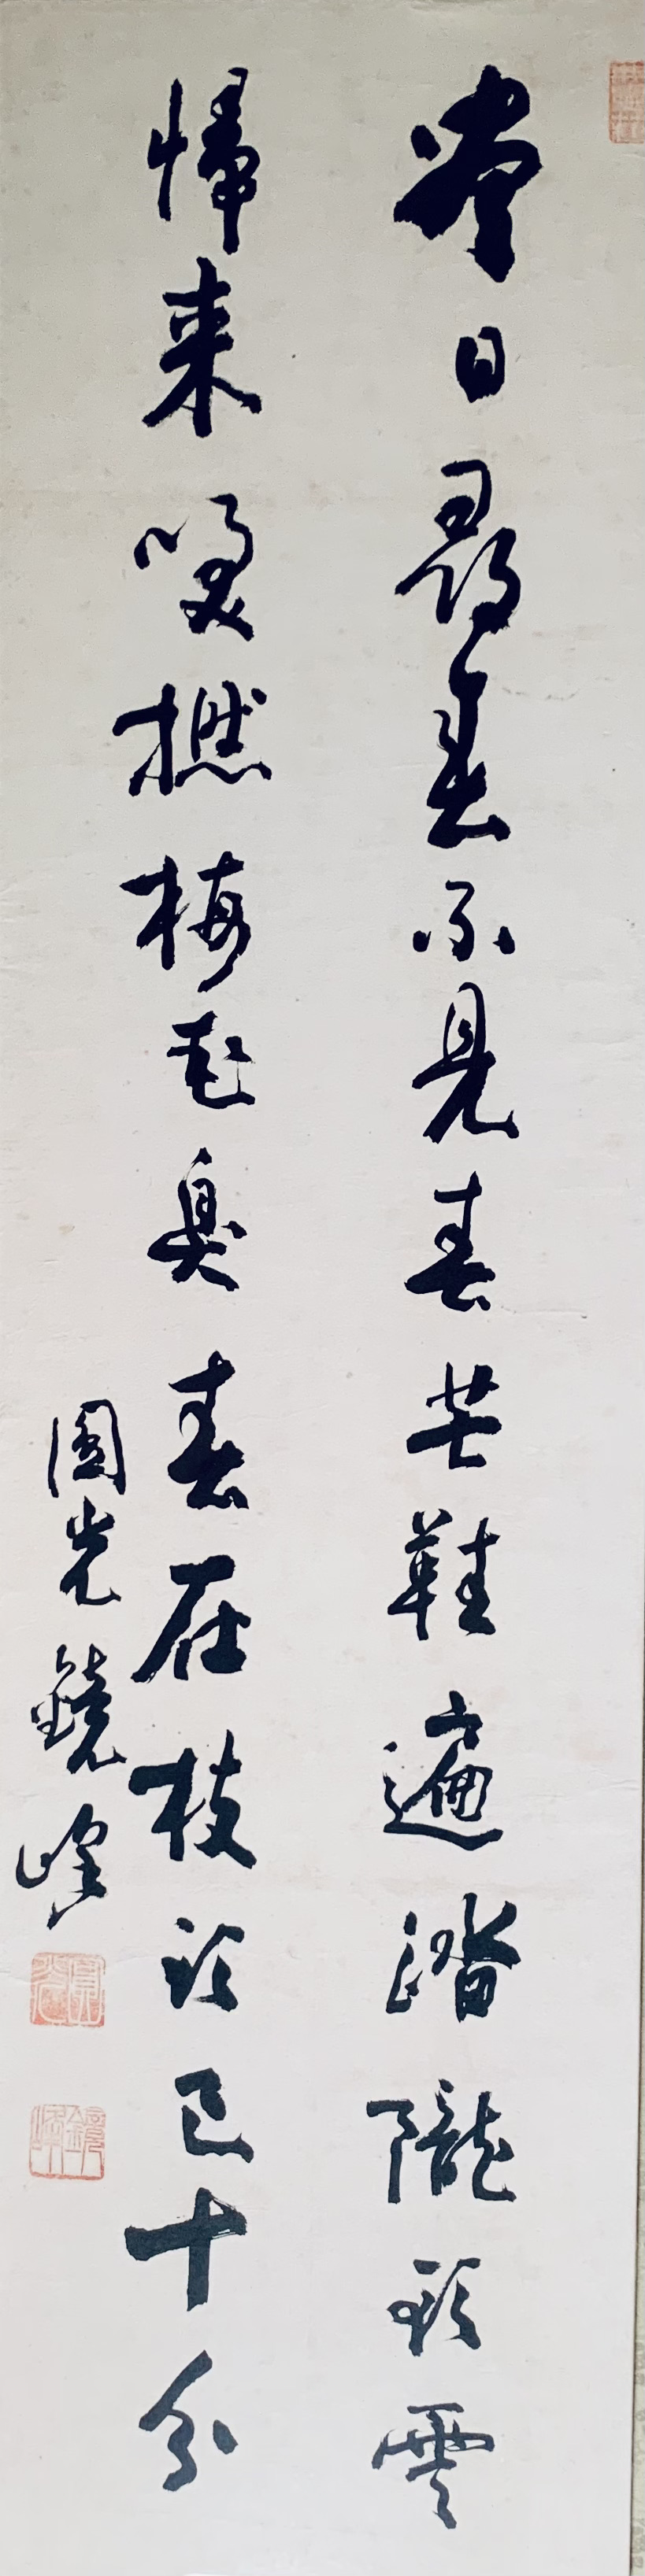 尽日尋春不見春芒鞋遍踏隴頭雲
帰来笑撚梅花臭春在枝頭已十分
圓光鏡峰
圓光
鏡峰